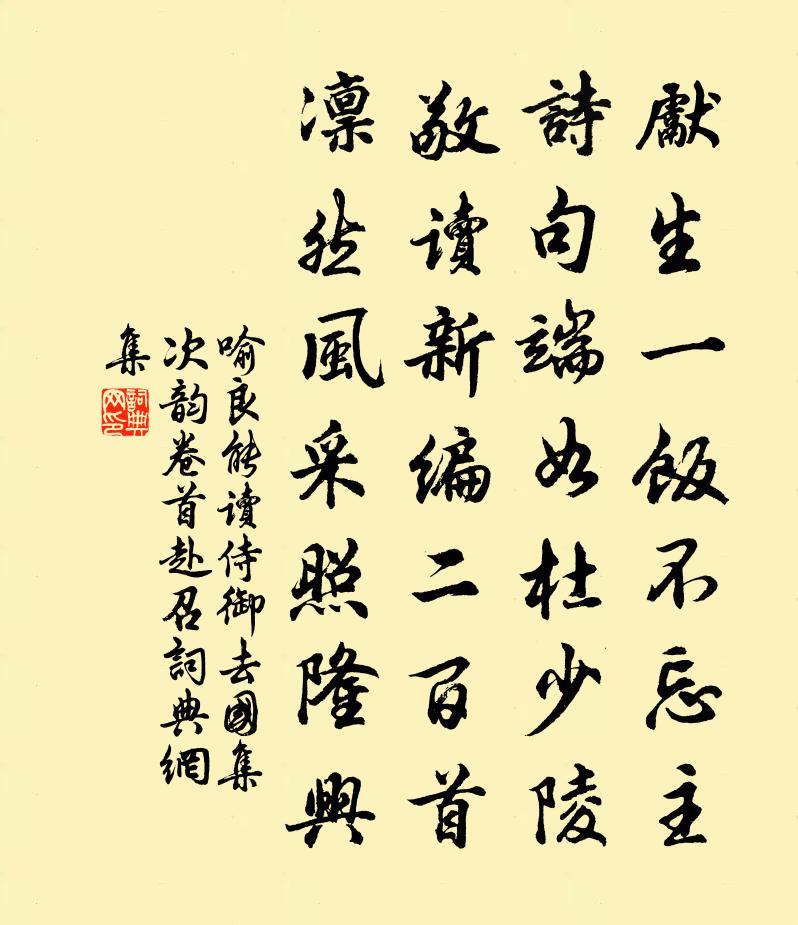 獻生一飯不忘主
詩句端如杜少陵
敬讀新編二百首
凛然風采照隆興
喻良能讀侍御去國集
次韵卷首赴召詞典網
集
詞典
网印